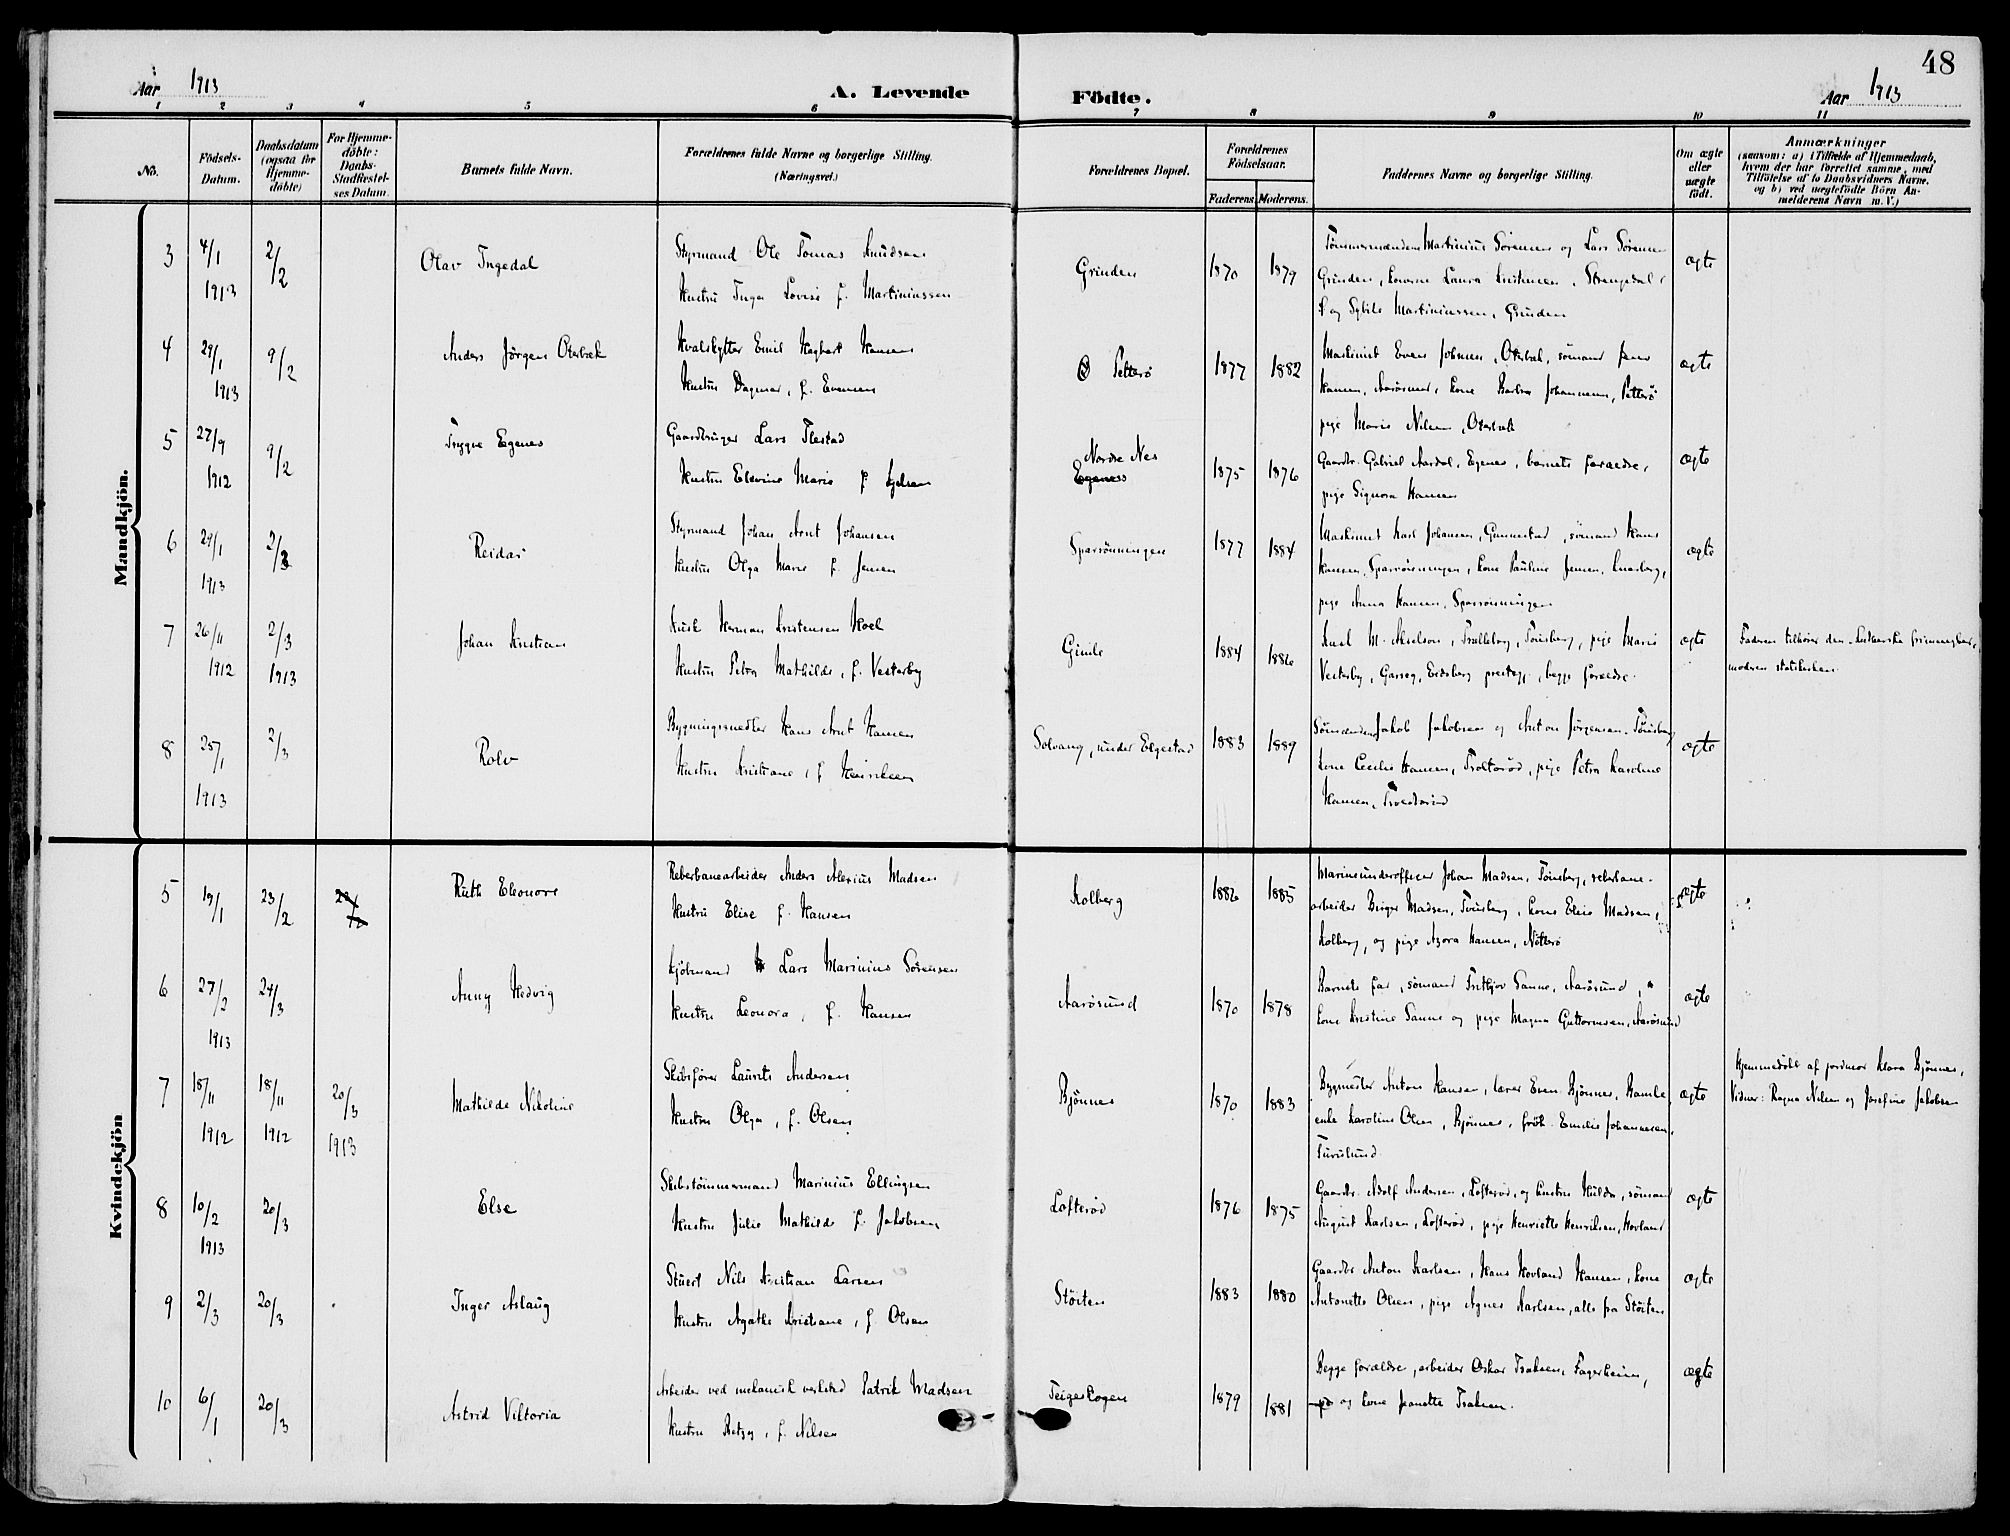 48
Aar 1913
A. Levende
Födte.
Aar 1913
1 2 3 4 5 6 7 8 9 10 11
No.
Födsels-
Datum.
Daabsdatum
(ogsaa for
Hjemme-
döbte)
For Hjemme-
döbte:
Daabs-
Stadfæstel-
ses Datum.
Barnets fulde Navn.
Forældrenes fulde Navne og borgerlige Stilling.
(Næringsvei.)
Forældrenes Bopæl.
Forældrenes
Födselsaar.
Faderens. Moderens.
Faddernes Navne og borgerlige Stilling.
Om ægte
eller
uægte
födt.
Anmærkninger
(saasom: a) i Tilfælde af Hjemmedaab,
hvem der har forrettet samme, med
Tilföielse af to Daabsvidners Navne,
og b) ved uægtefödte Börn An-
melderens Navn m. V.)
Mandkjön.
3
4/1
1913
2/2
Olav Ingedal
Styrmand Ole Tomas Knudsen
Hustru Inga Lovise f. Martiniussen
Grinden
1870
1879
Tømmermændene Martinius Sørensen og Lars Sørensen
Grinden, konerne Laura Kristensen, Strengsdal
og Sybile Martiniussen, Grinden
ægte
4
29/1
1913
9/2
Anders Jörgen Oterbæk
Hvalskytter Emil Hagbart Hansen
Hustru Dagmar, f. Evensen
Petterø
1877
1882
Maskinist Even Johnsen, Oterbæk, sömand Jens
Hansen, Aarøsund, kone Barbra Johannesen, Petterö
pige Marie Nilsen, Oterbæk
ægte
5
27/9
1912
9/2
Trygve Egenes
Gaardbruger Lars Flestad
Hustru Elevine Marie f.
Nordre Nes
Egenes
1875
1876
Gaardbr. Gabriel Aardal, Egenes, barnets forældre,
pige Signora Hansen
ægte
6
29/1
1913
2/3
Reidar
Styrmand Johan Arnt Johansen
Hustru Olga Marie f. Jensen
Sparrönningen
1877
1884
Maskinist Karl Johansen, Gunnestad, sömand Hans
Hansen, Sparrönningen, kone Pauline Jensen, Knarberg,
pige Anna Hansen, Sparrönningen
ægte
7
26/11
1912
2/3
1913
Johan Kristian
Kusk Herman Kristensen Hoel
Hustru Petra Mathilde, f. Vesterby
Gimle
1884
1886
Karl M. Akselson, Trælleborg, Tönsberg, pige Marie
Vesterby, Garseg, Eidsberg prestegj., begge forældre.
ægte
Faderen tilhører den Lutherske frimenighed,
moderen statskirken
8
25/1
1913
2/3
Rolv
Bygningssnedker Hans Arnt Hansen
Hustru Kristiane, f. Henriksen
Solvang, under Elgestad
1883
1889
Sömændene Jakob Jakobsen og Anton Jørgensen, Tönsberg
kone Cecilie Hansen, Troltesröd, pige Petra Karoline
Hansen,
ægte
Kvindekjön
5
19/1
23/2
Ruth Eleonore
Reberbanearbeider Anders Alexius Madsen
Hustru Elise f. Hansen
Kolberg
1886
1885
Marineunderofficer Johan Madsen, Tönsberg, reberbane-
arbeider Birger Madsen, Tönsberg, kone Elise Madsen,
Kolberg, og pige Agora Hansen, Nötterö
ægte
6
27/2
1913
24/3
Anny Hedvig
Kjöbmand Lars Marinius Sörensen
Hustru Leonora, f. Hansen
Aarösund
1870
1878
Barnets far, sömand Frithjov Sanne, Aarösund,
kone Kristine Sanne og pige Magna Guttormsen, Aarösund
ægte
7
18/11
1912
18/11
1912
20/3
1913
Mathilde Nikoline
Skibsfører Laurits Andersen
Hustru Olga, f. Olsen
Bjönnes
1870
1883
Bygmester Anton Hansen, lærer Even Bjönnes, Ramle,
enke Karoline Olsen, Bjönnes, frök. Emilie Johannesen,
Furulund.
ægte
Hjemmedöbt af jordmor Klara Bjönnes,
Vidner: Ragna Nilsen og Josefine Jakobsen
8
10/2
1913
20/3
Else
Skibstömmermand Marinius Ellingsen
Hustru Julie Mathilde f. Jakobsen
Lofteröd
1876
1875
Gaardbr. Adolf Andersen, Lofteröd, og hustru Hulda, sömand
August Karlsen, Lofteröd, pige Henriette Henriksen, Hovland
ægte
9
2/3
20/3
Inger Aslaug
Stuert Nils Kristian Larsen
Hustru Agathe Kristiane, f. Olsen
Störten
1883
1880
Gaardbr Anton Karlsen, Hans Hovland Hansen, kone
Antonette Olsen, pige Agnes Karlsen, alle fra Störten
ægte
10
6/1
20/3
Astrid Viktoria
Arbeider ved mekanisk verksted Patrik Madsen
Hustru Betzy, f. Nilsen
Teigeskogen
1879
1881
Begge forældre, arbeider Oskar Isaksen, Fagerheim,
og kone Jeanette Isaksen.
ægte